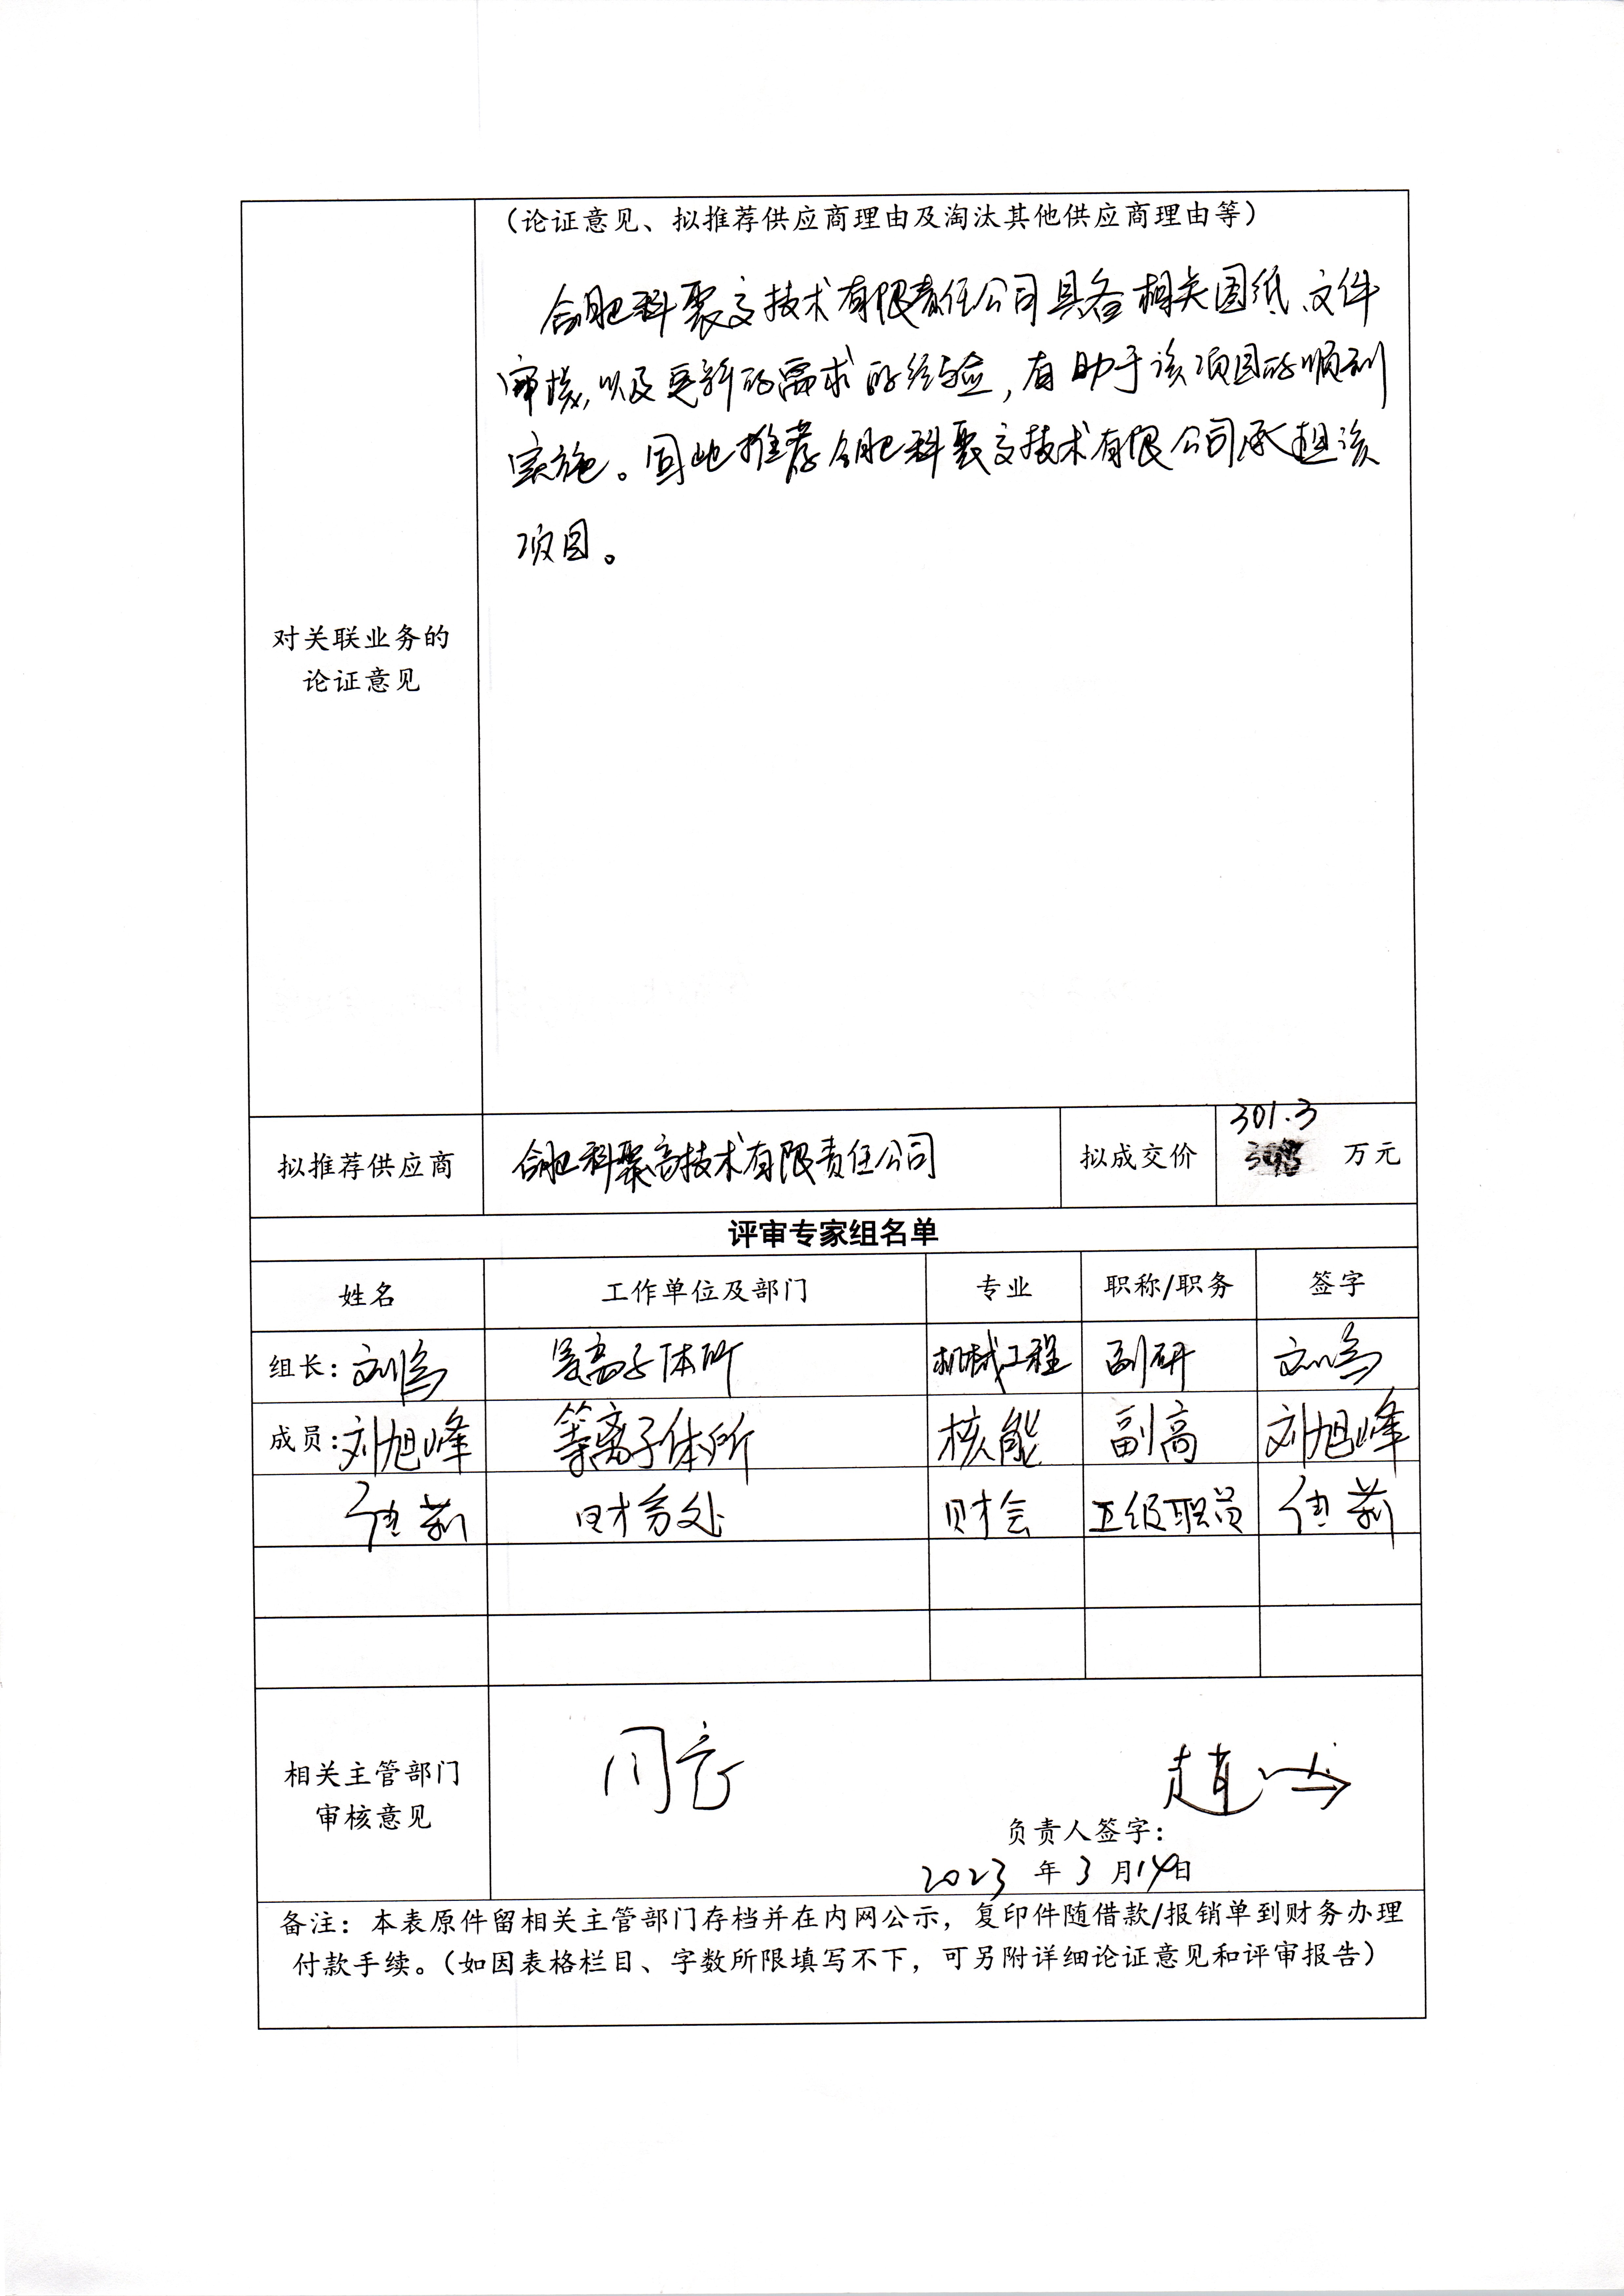 （论证意见、拟推荐供应商理由及淘汰其他供应商理由等）
合肥科聚高技术有限责任公司具备相关图纸、文件
审核，以及更新的需求的经验，有助于该项目的顺利
实施。因此推荐合肥科聚高技术有限公司承担该
项目。
对关联业务的
论证意见
拟推荐供应商 合肥科聚高技术有限责任公司 拟成交价 301.3 万元
评审专家组名单
姓名 工作单位及部门 专业 职称/职务 签字
组长： 等离子体所 机械工程 副研
成员：刘旭峰 等离子体所 核能 副高 刘旭峰
财务处 财会 五级职员
相关主管部门
审核意见
同意
负责人签字：
2023 年 3 月 14 日
备注：本表原件留相关主管部门存档并在内网公示，复印件随借款/报销单到财务办理
付款手续。（如因表格栏目、字数所限填写不下，可另附详细论证意见和评审报告）